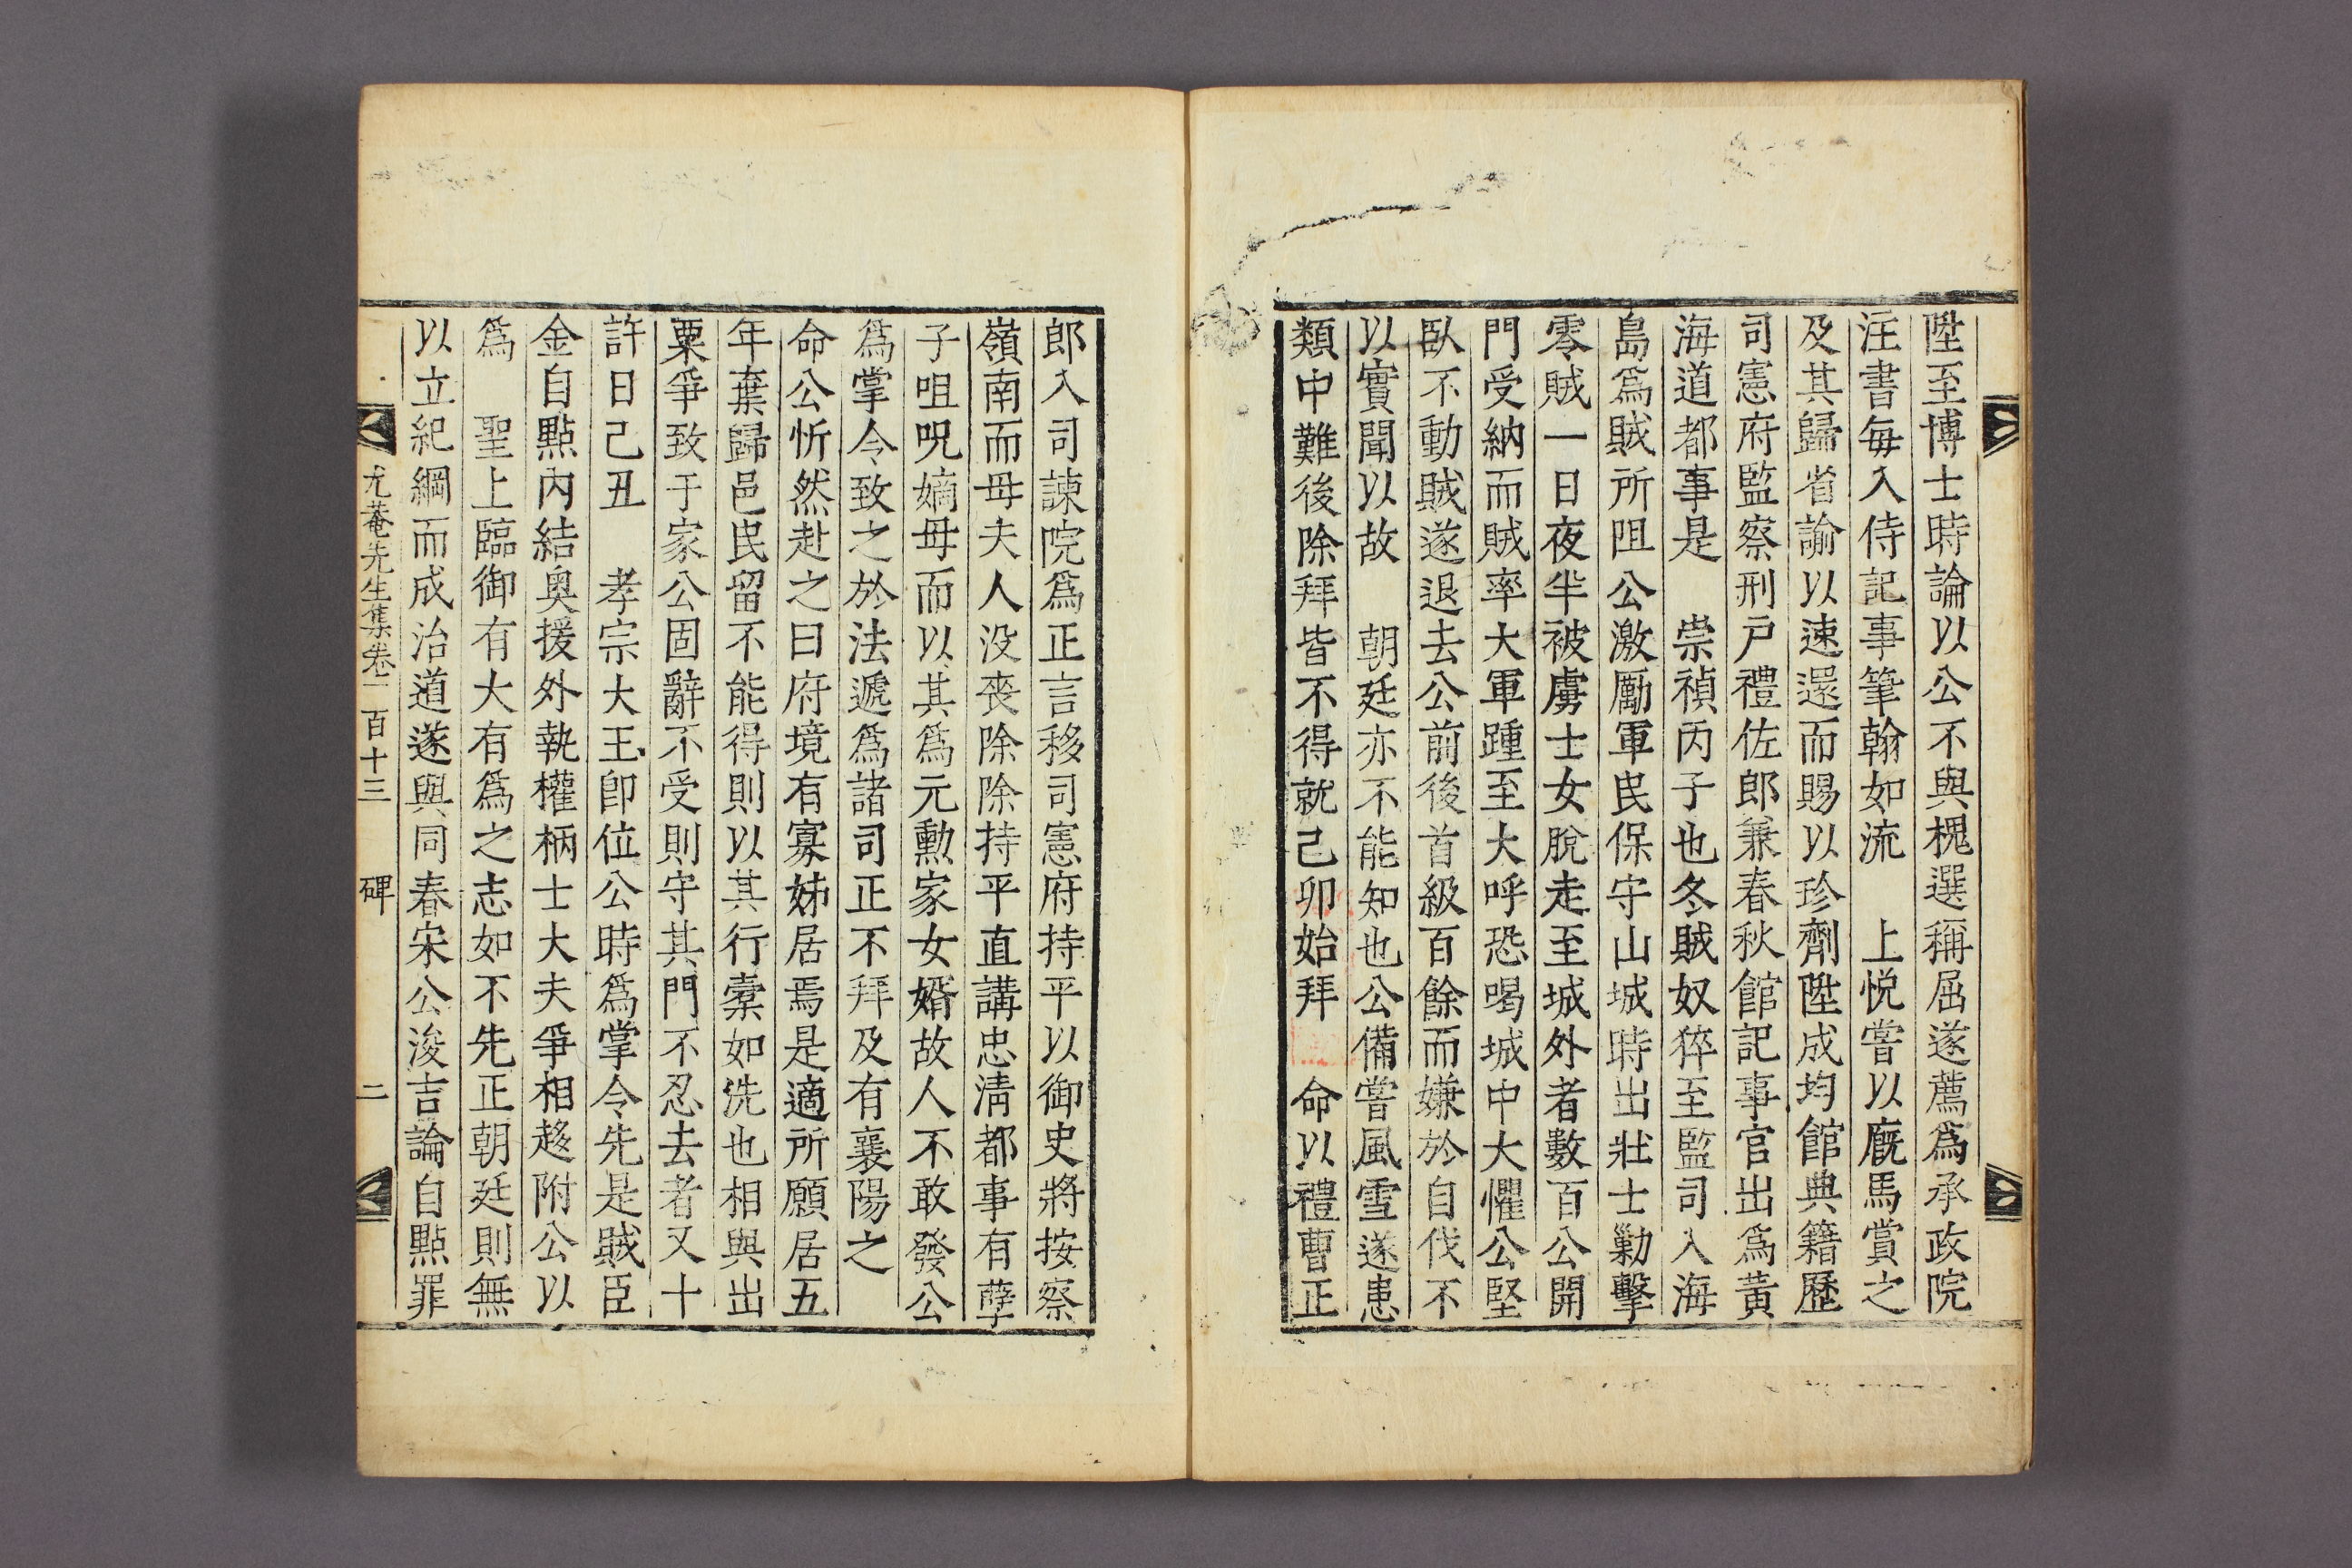 陞至博士時論以公不與槐選稱屈遂薦爲承政院
注書每入侍記事筆翰如流　上悅嘗以廐馬賞之
及其歸省諭以速還而賜以珍劑陞成均館典籍歷
司憲府監察刑戶禮佐郎兼春秋館記事官出爲黃
海道都事是　崇禎丙子也冬賊奴猝至監司入海
島爲賊所阻公激勵軍民保守山城時出壯士勦擊
零賊一日夜半被虜士女脫走至城外者數百公開
門受納而賊率大軍踵至大呼恐喝城中大懼公堅
臥不動賊遂退去公前後首級百餘而嫌於自伐不
以實聞以故　朝廷亦不能知也公備嘗風雪遂患
類中難後除拜皆不得就己卯始拜　命以禮曹正
郎入司諫院爲正言移司憲府持平以御史將按察
嶺南而母夫人没丧除除持平直講忠淸都事有孽
子咀呪嫡母而以其爲元勳家女婿故人不敢發公
爲掌令致之於法遞爲諸司正不拜及有襄陽之
命公忻然赴之曰府境有寡姊居焉是適所願居五
年棄歸邑民留不能得則以其行橐如洗也相與出
粟爭致于家公固辭不受則守其門不忍去者又十
許日己丑　孝宗大王卽位公時爲掌令先是賊臣
金自點內結奧援外執權柄士大夫爭相趍附公以
爲　聖上臨御有大有爲之志如不先正朝廷則無
以立紀綱而成治道遂與同春宋公浚吉論自點罪
尤菴先生集卷一百十三　碑　二